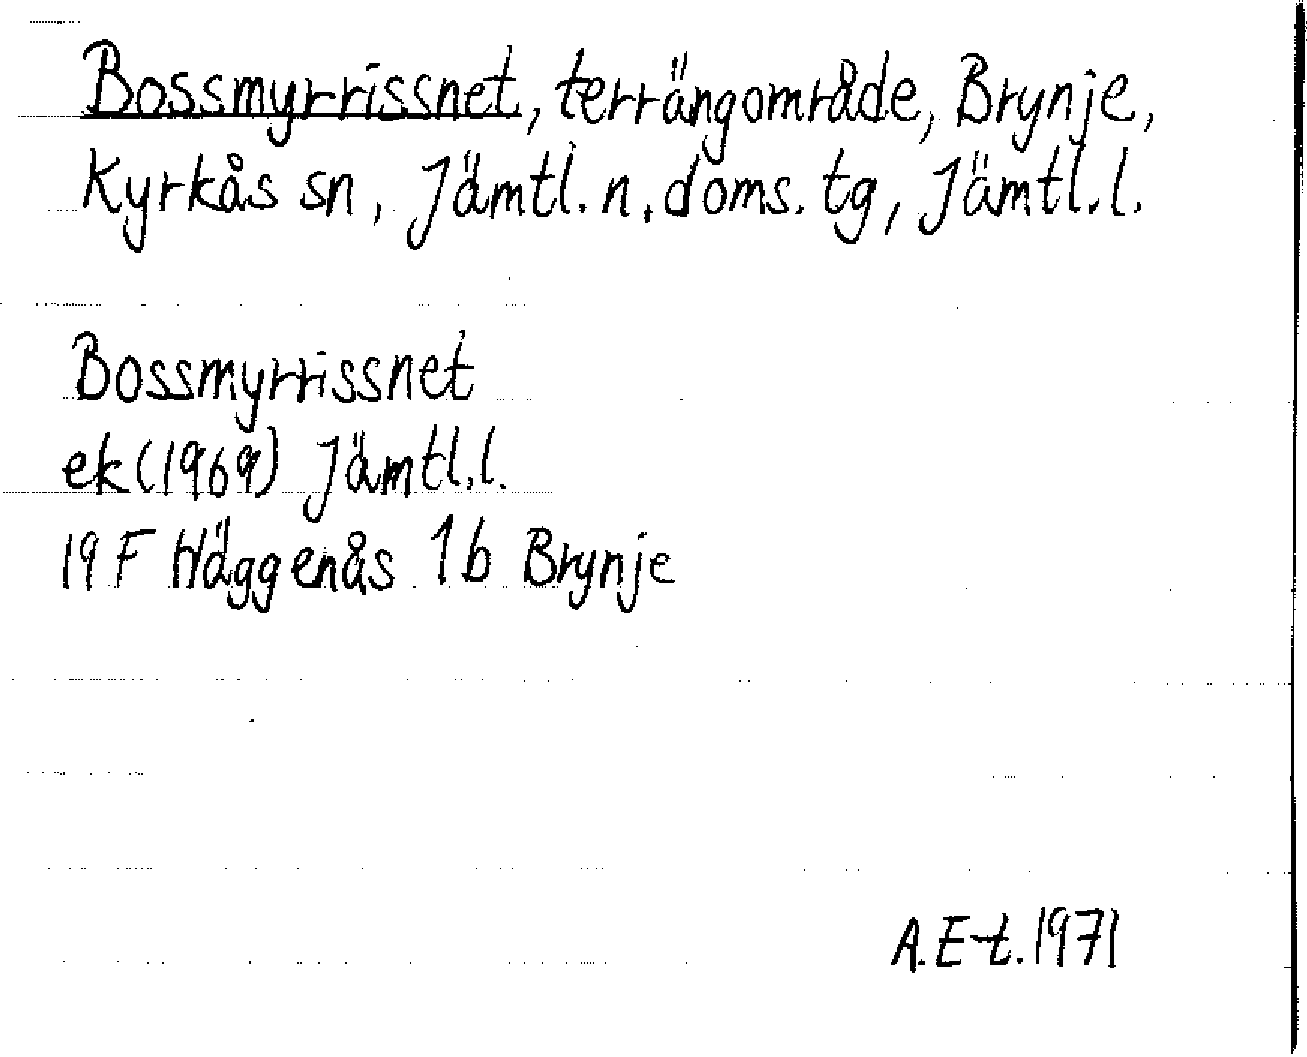 Bossmyrrissnet, terrängområde, Brynje,
Kyrkås sn, Jämtl. n. doms. tg, Jämtl.l.
Bossmyrrissnet
ek (1969) Jämtl.l.
19 F Häggenås 1b Brynje
A.E-t. 1971